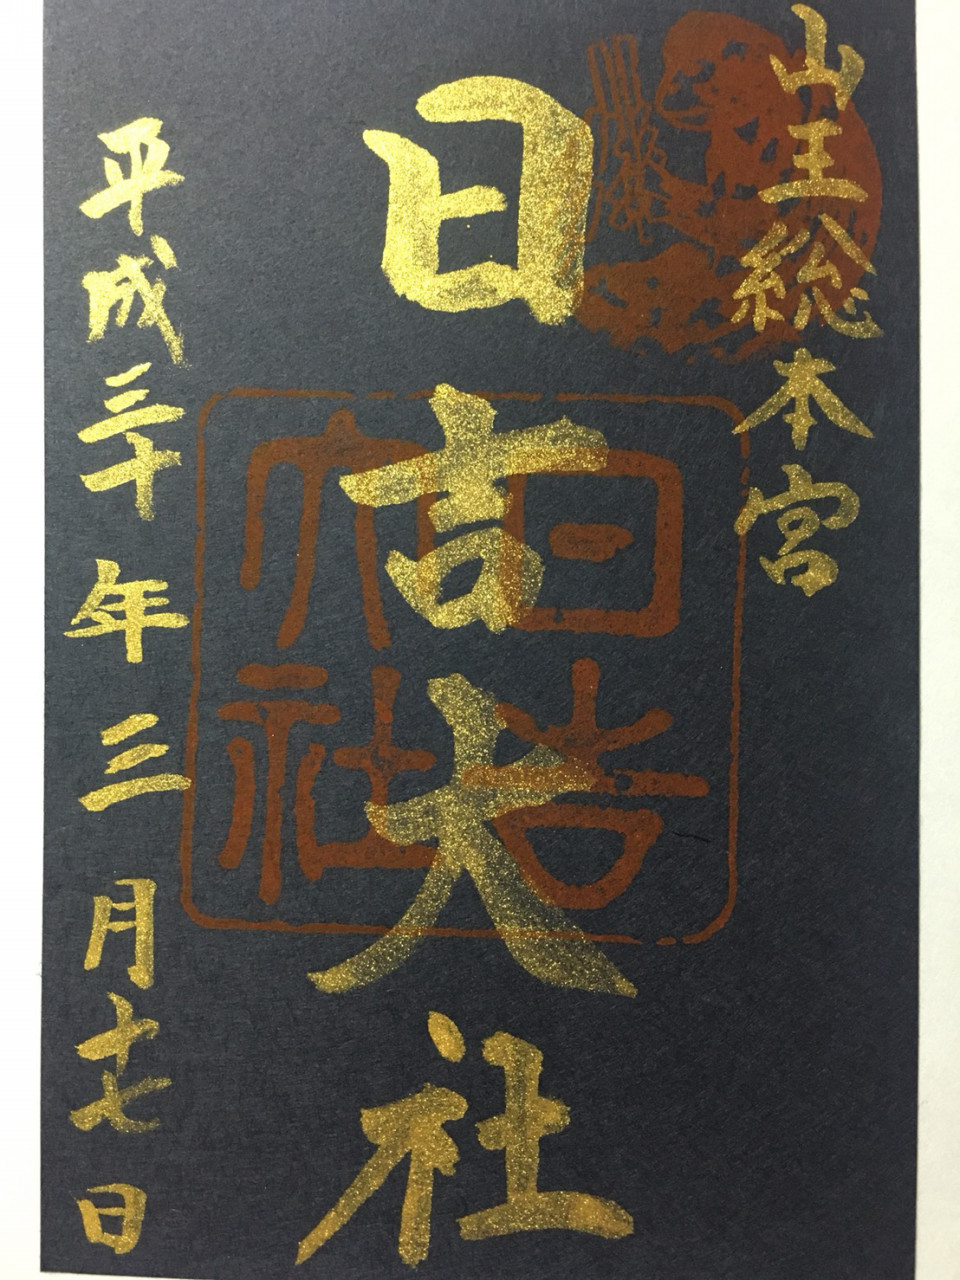 山王総本宮
日吉大社
日吉大社
平成三十年三月十七日